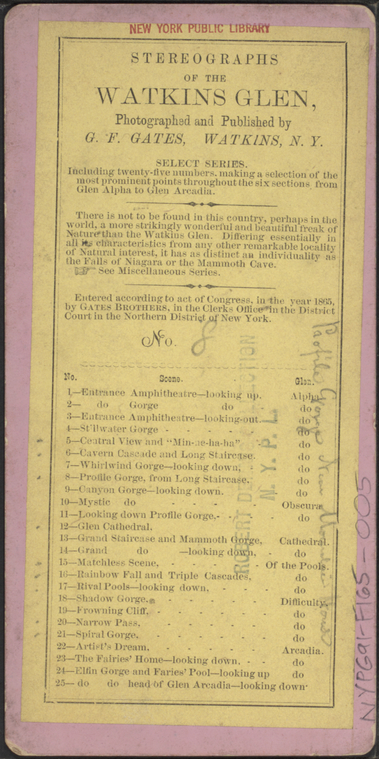 NEW YORK PUBLIC LIBRARY
STEREOGRAPHS
OF THE
WATKINS GLEN,
Photographed and Published by
G. F. GATES, WATKINS, N. Y.
SELECT SERIES.
Including twenty-five numbers, making a selection of the
most prominent points throughout the six sections from
Glen Alpha to Glen Arcadia.
There is not to be found in this country, perhaps in the
world, a more strikingly wonderful and beautiful freak of
Nature than the Watkins Glen. Differing essentially in
all its characteristics from any other remarkable locality
of Natural interest, it has as distinct an individuality as
the Falls of Niagara or the Mammoth Cave.
☞ See Miscellaneous Series.
Entered according to act of Congress, in the year 1865,
by GATES BROTHERS, in the Clerks Office in the District
Court in the Northern District of New York.
No. 8
No. Scene. Glen.
1—Entrance Amphitheatre—looking up. Alpha
2— do Gorge do do
3—Entrance Amphitheatre—looking-out do
4—Stillwater Gorge - - - - do
5—Central View and "Min-ne-ha-ha" do
6—Cavern Cascade and Long Staircase. do
7—Whirlwind Gorge—looking down, - do
8—Profile Gorge, from Long Staircase, do
9—Canyon Gorge—looking down. - do
10—Mystic do - - - - Obscura
11—Looking down Profile Gorge,- - do
12—Glen Cathedral,
13—Grand Staircase and Mammoth Gorge, Cathedral.
14—Grand do —looking down, - do
15—Matchless Scene, - - - Of the Pools.
16—Rainbow Fall and Triple Cascades, do
17—Rival Pools—looking down, - do
18—Shadow Gorge, - - - Difficulty,
19—Frowning Cliff, - - - do
20—Narrow Pass, - - - do
21—Spiral Gorge, - - - do
22—Artist's Dream, - - - Arcadia.
23—The Fairies' Home—looking down, - do
24—Elfin Gorge and Faries' Pool—looking up do
25— do do head of Glen Arcadia—looking down
Profile Gorge
N. Y. P. L.
NYPG91-F165-005